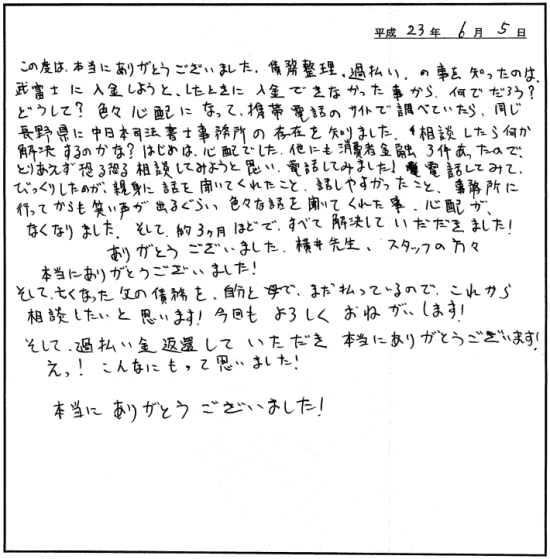 平成 23年 6月 5日
この度は、本当にありがとうございました。債務整理、過払い、の事を知ったのは、
武富士に入金しようと、したときに入金できなかった事から、何でだろう?
どうして?色々心配になって、携帯電話のサイトで調べていたら、同じ
長野県に中日本司法書士事務所の存在を知りました。相談したら何か
解決するのかな?はじめは、心配でした。他にも消費者金融、3件あったので、
とりあえず恐る恐る相談してみようと思い、電話してみました!電話してみて、
びっくりしたのが、親身に話を聞いてくれたこと、話しやすかったこと、事務所に
行ってからも笑い声が出るぐらい、色々な話を聞いてくれた事、心配が、
なくなりました。そして、約3ヶ月ほどで、すべて解決していだだきました!
ありがとうございました。横井先生、スタッフの方々
本当にありがとうございました!
そして、亡くなった父の債務を、自分と母で、まだ払っているので、これから
相談したいと思います!今回もよろしくおねがいします!
そして、過払い金返還していただき本当にありがとうございます!
えっ!こんなにもって思いました!
本当にありがとうございました!